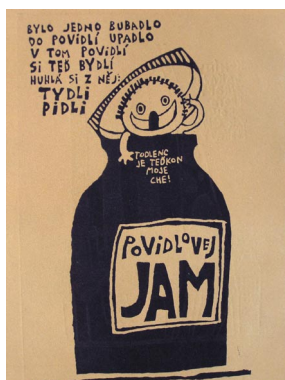 BYLO JEDNO BUBADLO
DO POVIDLÍ UPADLO
V TOM POVIDLÍ
SI TEĎ BYDLÍ
HUHLÁ SI Z NĚJ:
TYDLI
PIDLI
TODLENC
JE TEĎKON
MOJE
CHE!
POVIDLOVEJ
JAM